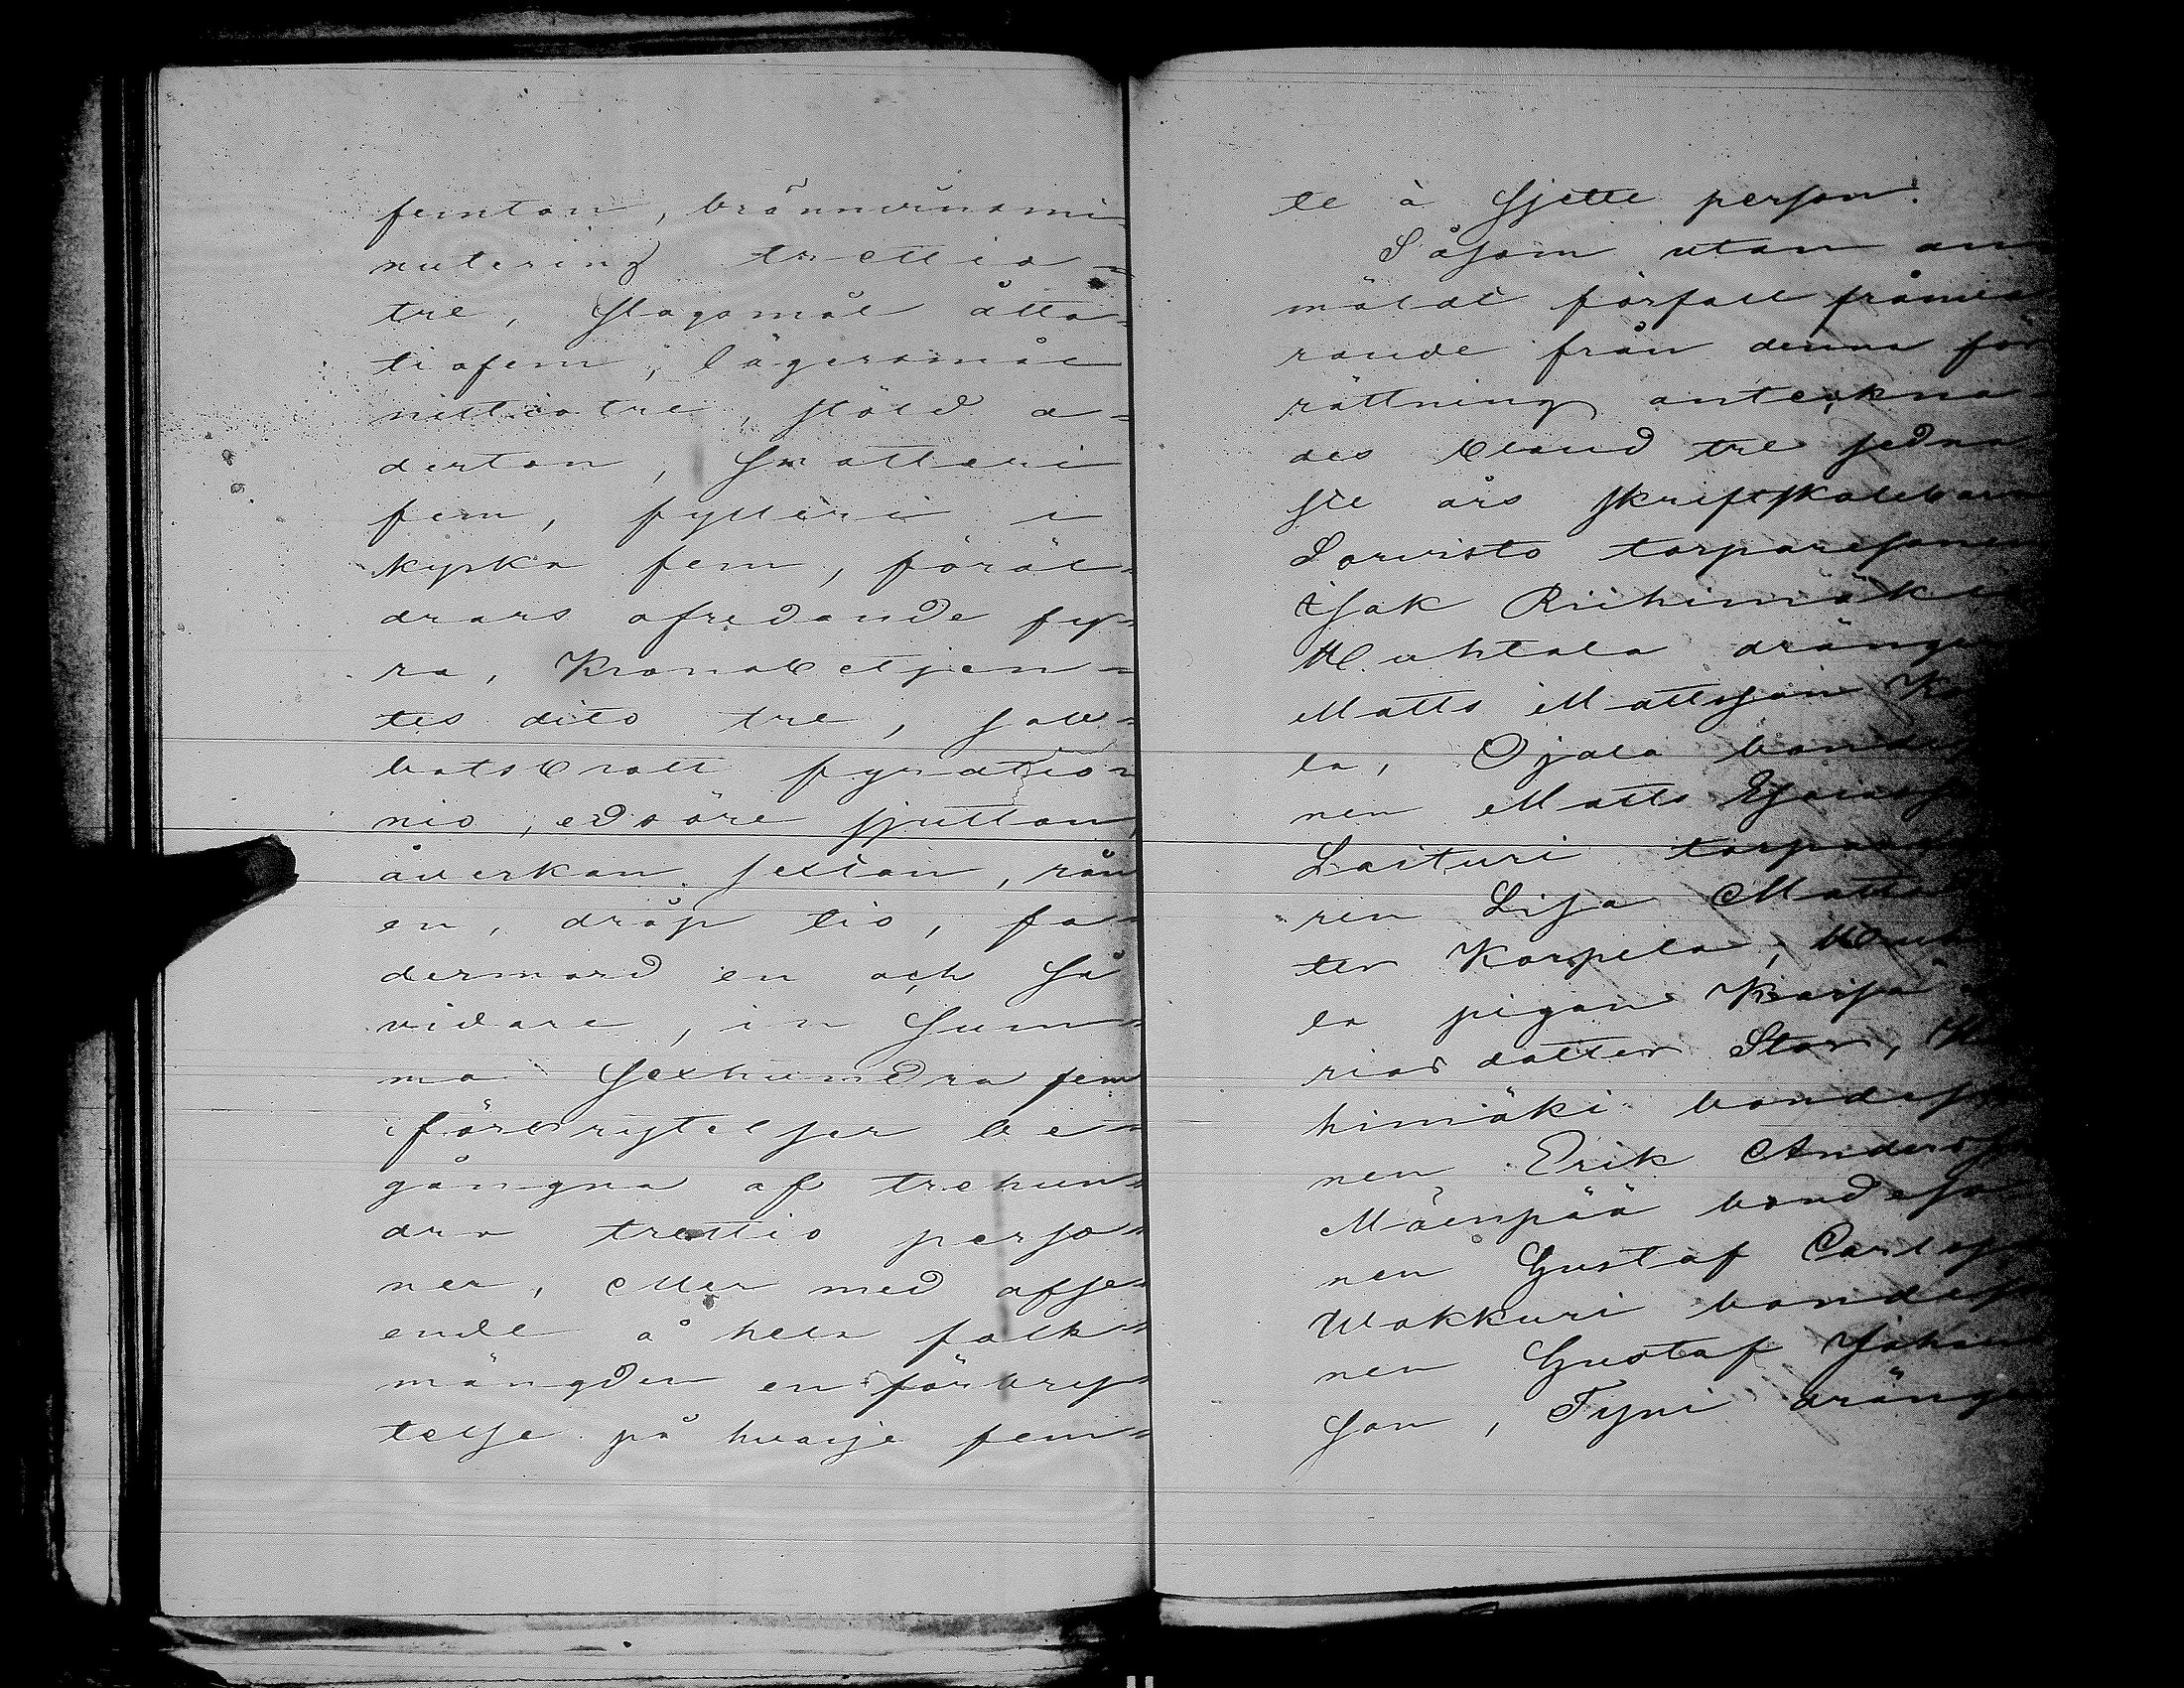 femton, brännvinsmi
nutering trettio-
tre, slagsmål åtta-
tiofem, lägersmål
nittiotre, stöld a-
derton, snatteri
fem, fylleri i
kyrka fem, föräl-
drars ofredande fy-
ra, Kronobetjen-
tes dito tre, sab-
batsbrott fyratio-
nio, edsöre sjutton,
åverkan sextan, rån
en, dråp tio, fa-
dermord en och så
vidare, in Sum-
ma Sexhundra fem
förbrytelser be-
gångna af trehun-
dra trettio perso-
ner, eller med afse-
ende å hela folk-
mängden en förbry-
telse på hvarje fem-
te à sjette person.
Såsom utan an
mäldt förfall frånva
rande från denna för
rättning anteckna-
des bland tre sedna
ste års skriftskolebarn
Sorvisto torparesonen
Isak Riihimäki
Huhtala drängen
Matts Mattsson
la, Ojala bonde
nen Matts
Laituri
rin Lisa
ter Korpela,
la pigan Kaisa
riasdotter Stor,
himäki bondeso
nen Erik Andersson
Mäenpää bondeso
nen Gustaf Carls
Wakkuri bondeso
nen Gustaf Johan
son, Tyni drängen